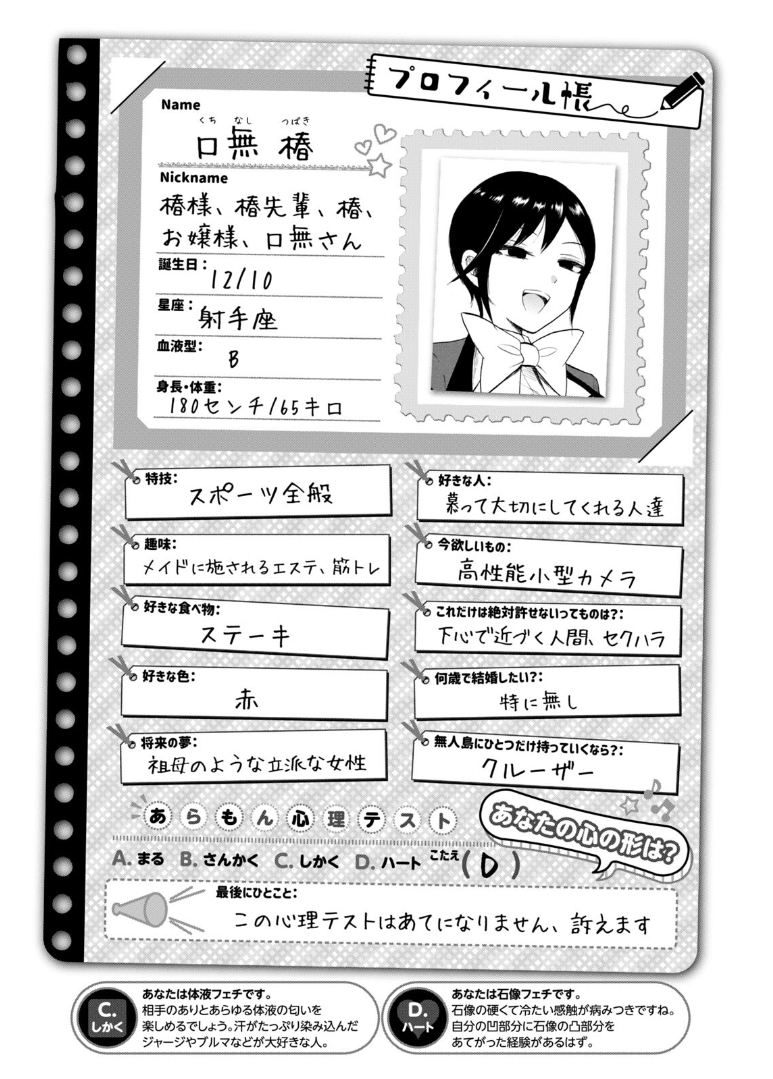 プロフィール帳
Name
くちなし つばき
口無 椿
Nickname
椿様、椿先輩、椿、
お嬢様、口無さん
誕生日:
12/10
星座:
射手座
血液型:
B
身長・体重:
180センチ/65キロ
特技:
スポーツ全般
趣味:
メイドに施されるエステ、筋トレ
好きな食べ物:
ステーキ
好きな色:
赤
将来の夢:
祖母のような立派な女性
好きな人:
慕って大切にしてくれる人達
今欲しいもの:
高性能小型カメラ
これだけは絶対許せないってものは?:
下心で近づく人間、セクハラ
何歳で結婚したい?:
特に無し
無人島にひとつだけ持っていくなら?:
クルーザー
あらもん心理テスト
あなたの心の形は?
A. まる B. さんかく C. しかく D. ハート こたえ(D)
最後にひとこと:
この心理テストはあてになりません、訴えます
C.
しかく
あなたは体液フェチです。
相手のありとあらゆる体液の匂いを
楽しめるでしょう。汗がたっぷり染み込んだ
ジャージやブルマなどが大好きな人。
D.
ハート
あなたは石像フェチです。
石像の硬くて冷たい感触が病みつきですね。
自分の凹部分に石像の凸部分を
あてがった経験があるはず。